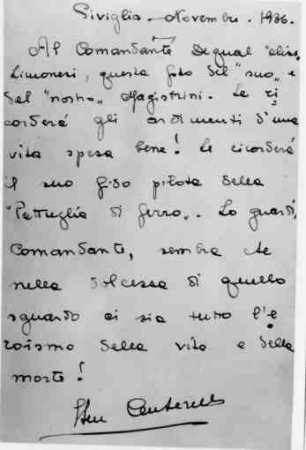 Siviglia - Novembre - 1936.
Al Comandante
Limoneri, questa foto del "suo" e
del "nostro" Magistrini. Le ri
corderà gli ardimenti d'una
vita spesa bene! Le ricorderà
il suo fido pilota della
"Pattuglia di ferro". Lo guardi,
Comandante, sembra che
nella dolcezza di quello
sguardo ci sia tutto l'e
roismo della vita e della
morte!